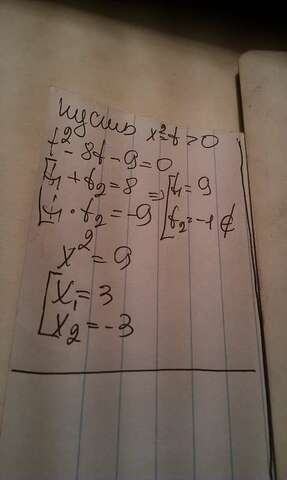 пусть x²=t>0
t² - 8t - 9 = 0
[t₁ + t₂ = 8 => [t₁ = 9
[t₁ · t₂ = -9 [t₂ = -1 ∉
x² = 9
[x₁ = 3
[x₂ = -3